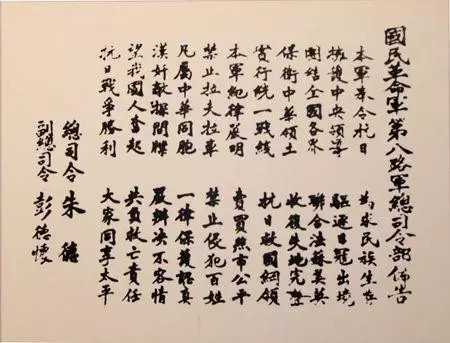 國民革命軍第八路軍總司令部佈告
本軍奉令抗日 為求民族生存
擁護中央領導 驅逐日寇出境
團結全國各界 聯合法蘇美英
保衛中華領土 收復失地完整
實行統一戰綫 抗日救國綱領
本軍紀律嚴明 賣買照市公平
禁止拉夫拉車 禁止侵犯百姓
凡屬中華同胞 一律保護認真
漢奸敵探間牒 嚴辦決不容情
望我國人奮起 共負救亡責任
抗日戰爭勝利 大家同享太平
總司令 朱德
副總司令 彭德懷